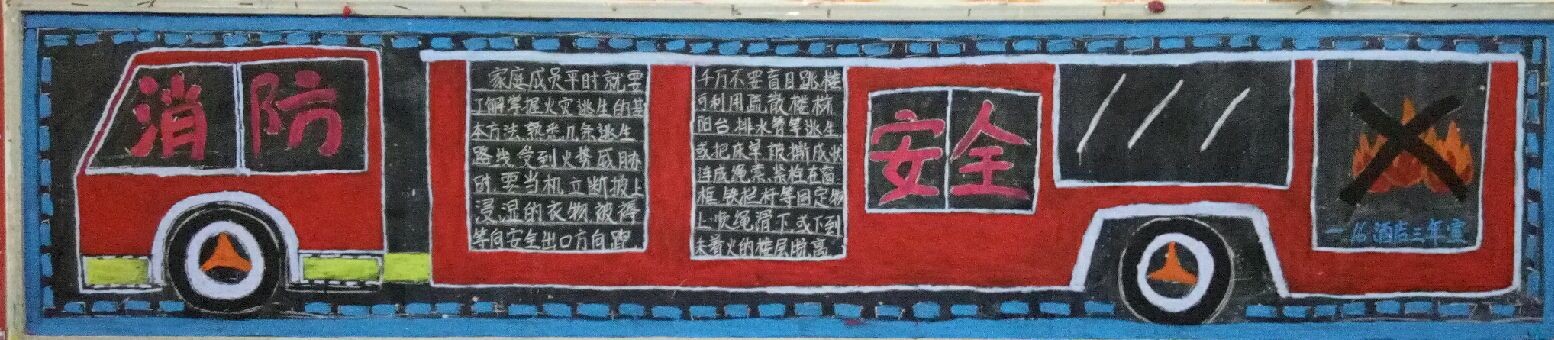 消防
家庭成员平时就要
了解掌握火灾逃生的基
本方法,熟悉几条逃生
路线,受到火势威胁
时,要当机立断披上
浸湿的衣物、被褥
等向安全出口方向跑
千万不要盲目跳楼
可利用疏散楼梯
阳台,排水管等逃生
或把床单、被撕成状
连成绳索,紧拴在窗
框、铁栏杆等固定物
上,顺绳滑下,或下到
未着火的楼层脱离
安全
一16酒店三年宣